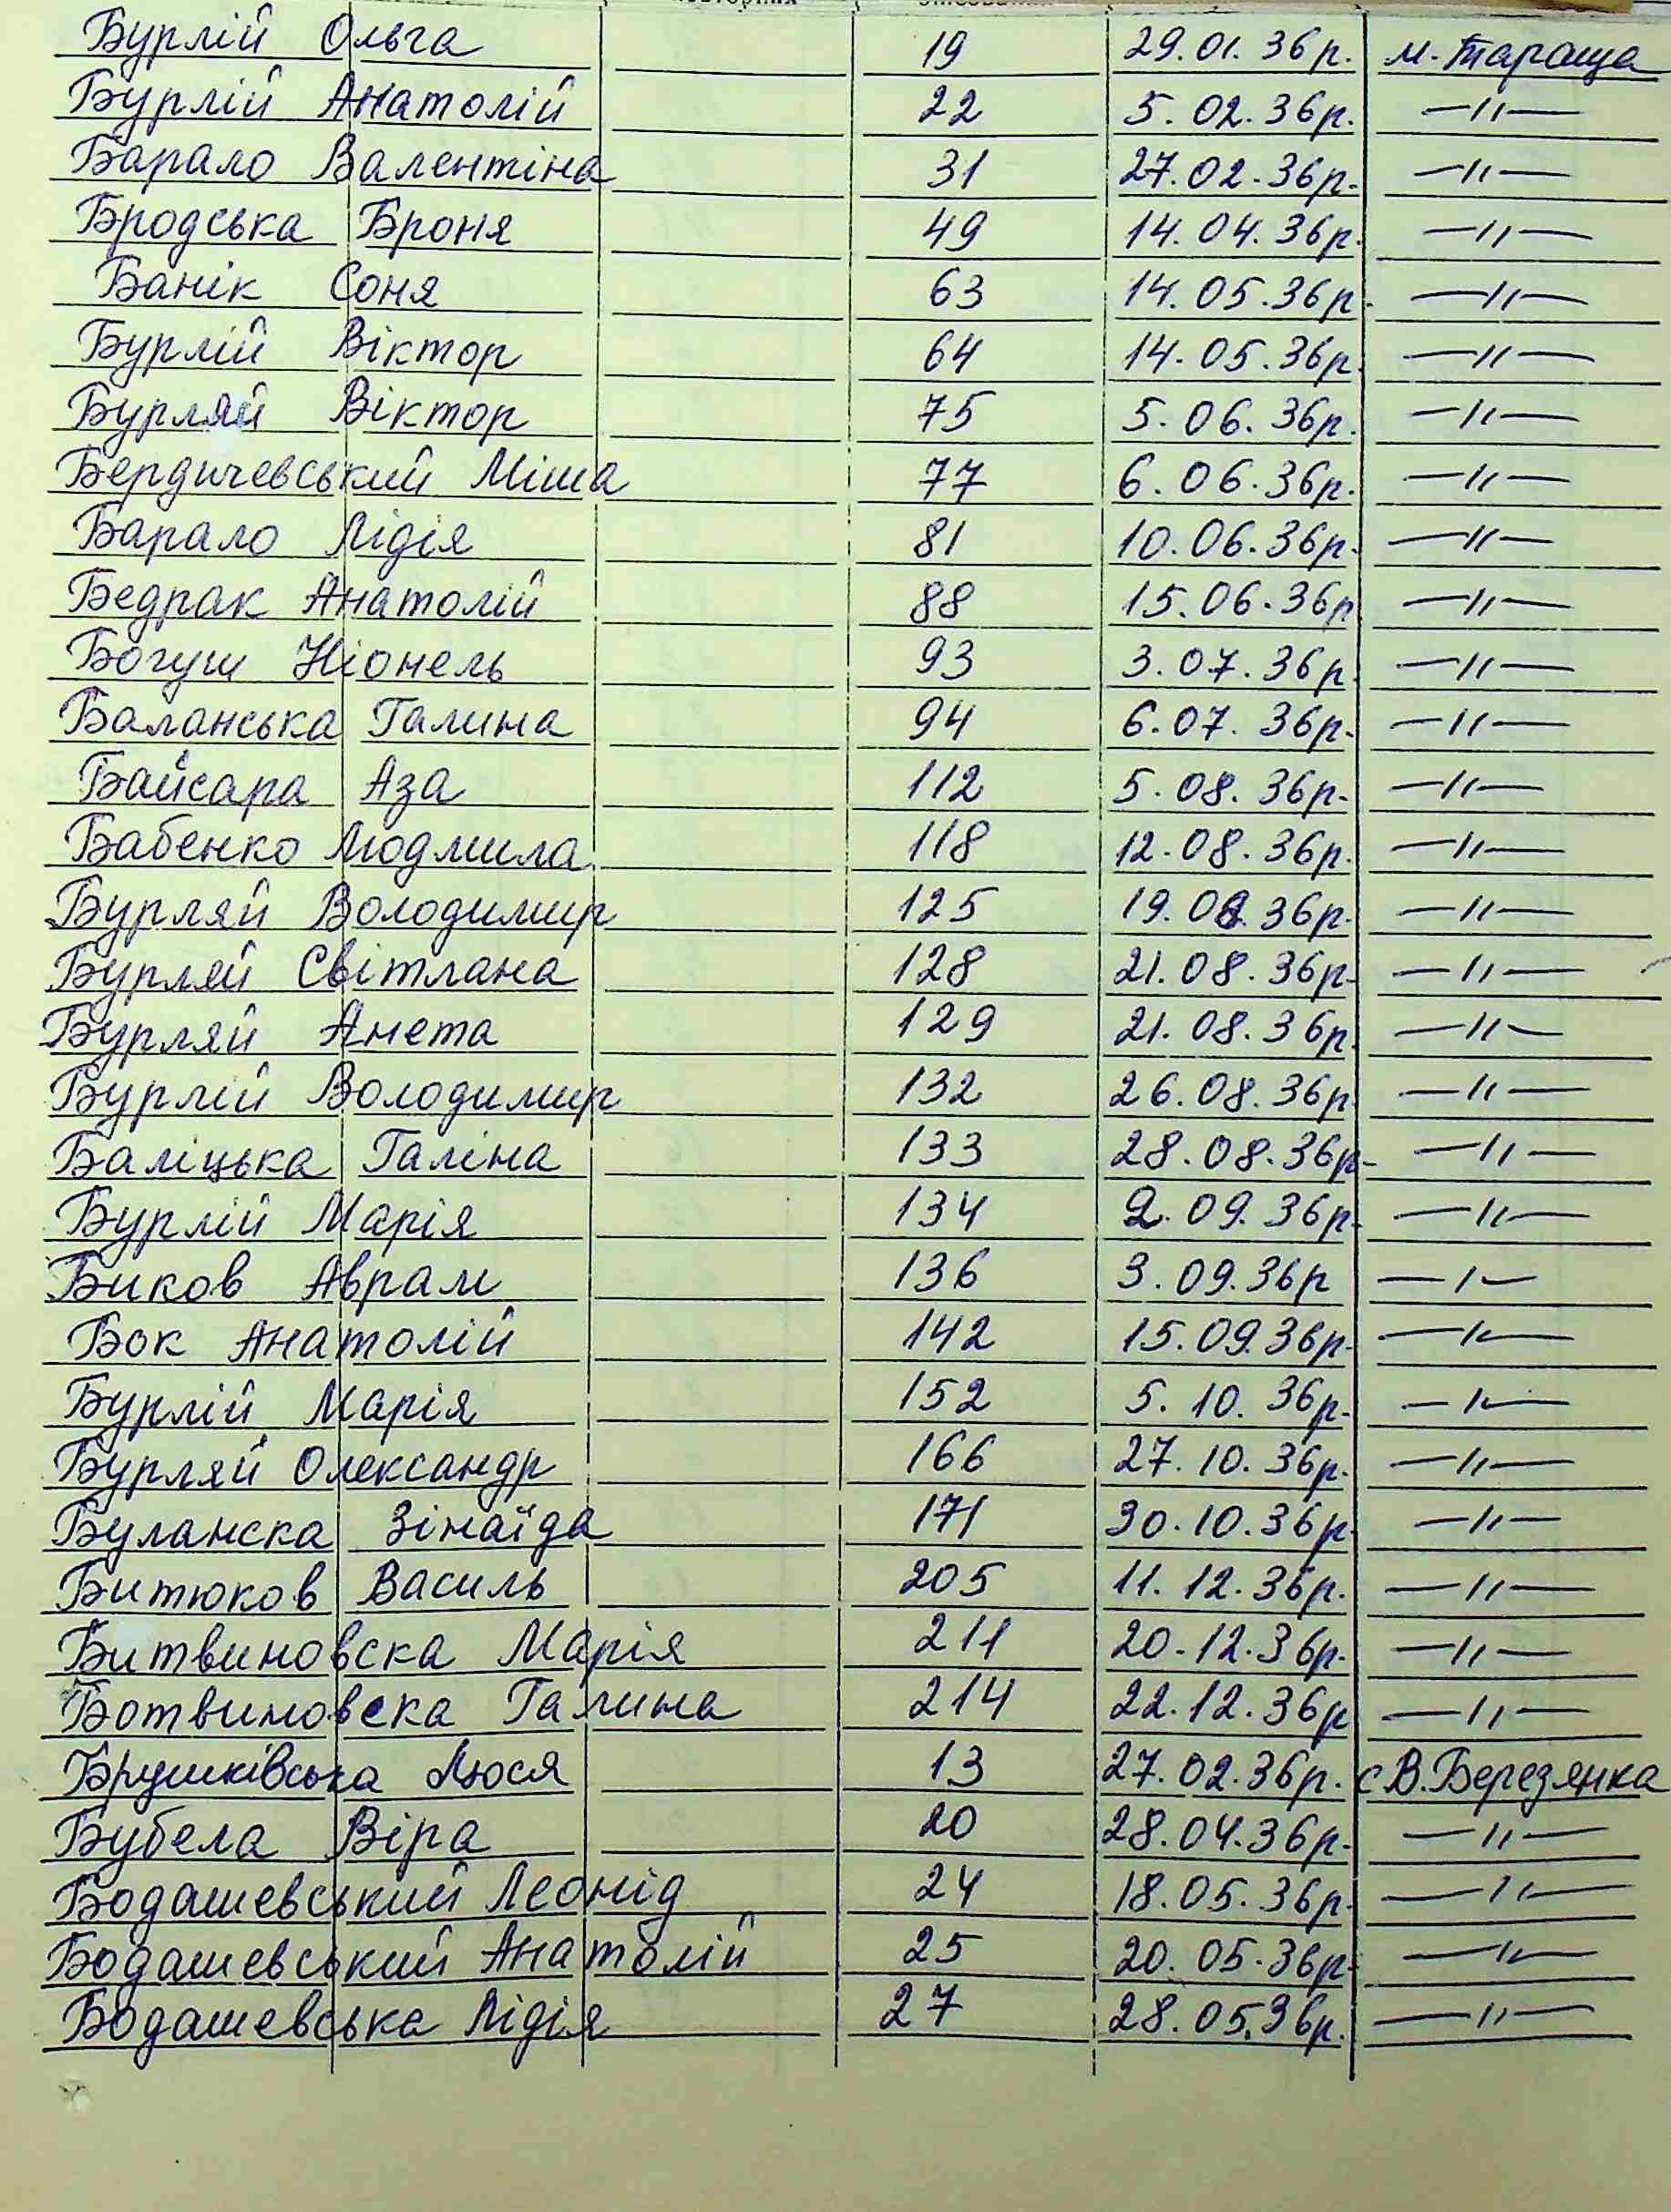 Бурлій Ольга 19 29.01.36р. м. Тараща
Бурлій Анатолій 22 5.02.36р. —"—
Барало Валентіна 31 27.02.36р. —"—
Бродська Броня 49 14.04.36р. —"—
Банік Соня 63 14.05.36р. —"—
Бурлій Віктор 64 14.05.36р. —"—
Бурляй Віктор 75 5.06.36р. —"—
Бердичевський Міша 77 6.06.36р. —"—
Барало Лідія 81 10.06.36р. —"—
Бедрак Анатолій 88 15.06.36р —"—
Богуш Ніонель 93 3.07.36р. —"—
Баланська Галина 94 6.07.36р. —"—
Байсара Аза 112 5.08.36р. —"—
Бабенко Людмила 118 12.08.36р. —"—
Бурляй Володимир 125 19.08.36р. —"—
Бурляй Світлана 128 21.08.36р. —"—
Бурляй Анета 129 21.08.36р. —"—
Бурлій Володимир 132 26.08.36р. —"—
Баліцька Галіна 133 28.08.36р. —"—
Бурлій Марія 134 2.09.36р. —"—
Биков Аврам 136 3.09.36р —"—
Бок Анатолій 142 15.09.36р. —"—
Бурлій Марія 152 5.10.36р. —"—
Бурляй Олександр 166 27.10.36р. —"—
Буланска Зінаїда 171 30.10.36р. —"—
Битюков Василь 205 11.12.36р. —"—
Битвиновска Марія 211 20.12.36р. —"—
Ботвиновска Галина 214 22.12.36р —"—
Брушківська Люся 13 27.02.36р. с В. Березянка
Бубела Віра 20 28.04.36р. —"—
Бодашевський Леонід 24 18.05.36р. —"—
Бодашевський Анатолій 25 20.05.36р. —"—
Бодашевська Лідія 27 28.05.36р. —"—